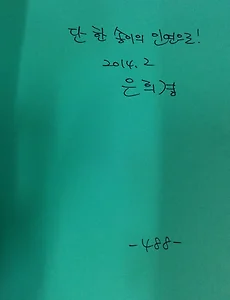 단 한 송이의 인연으로!
2014. 2
은희경
-488-